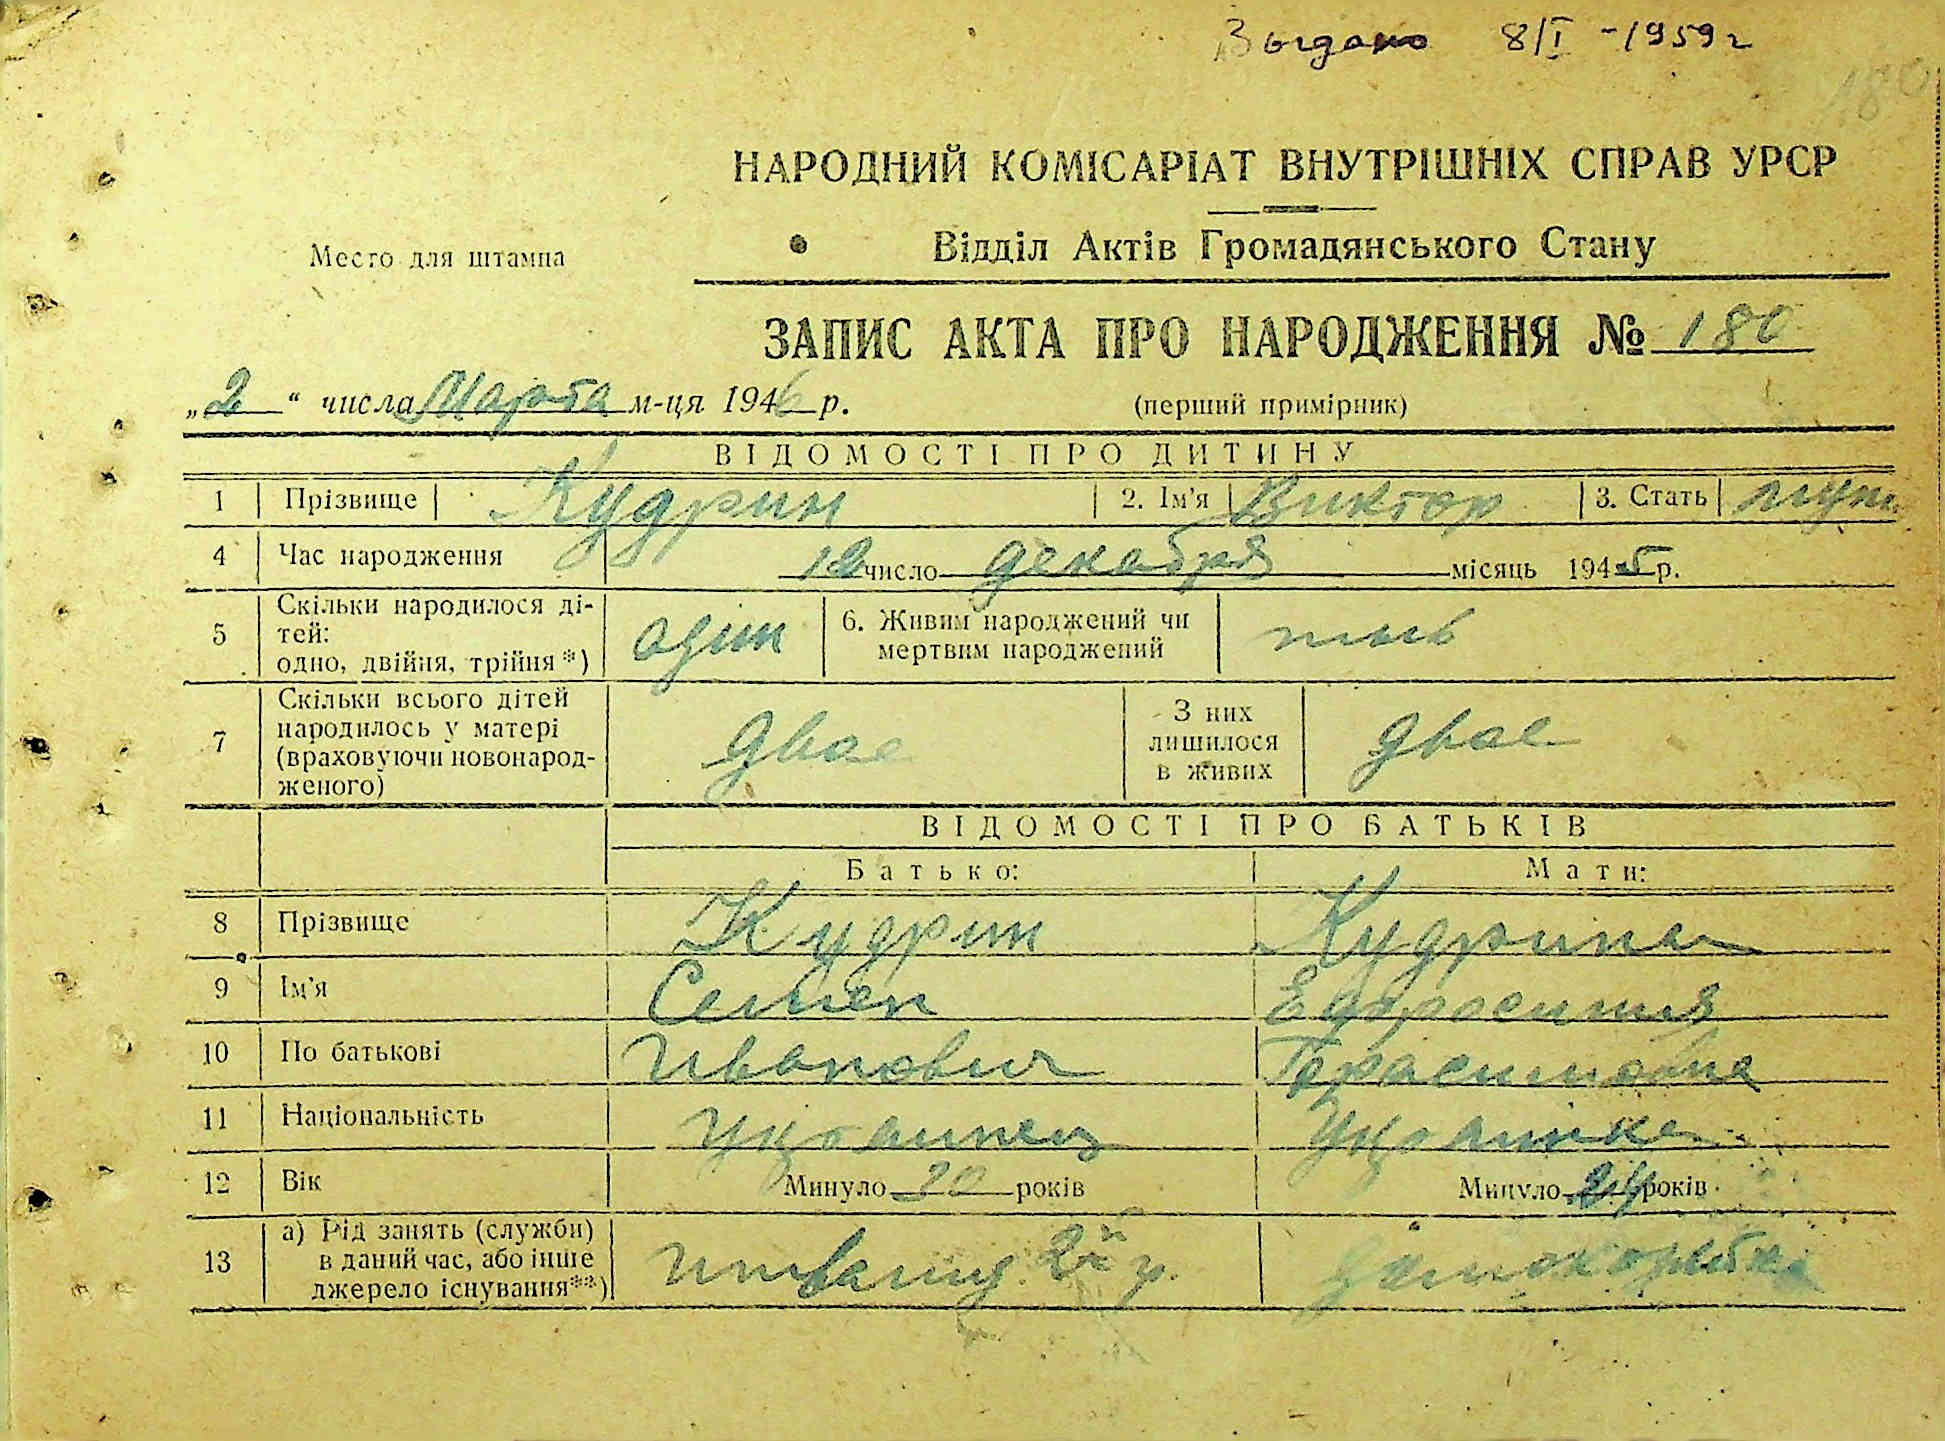 Выдано 8/I -1959 г
180
НАРОДНИЙ КОМІСАРІАТ ВНУТРІШНІХ СПРАВ УРСР
Место для штампа
Відділ Актів Громадянського Стану
ЗАПИС АКТА ПРО НАРОДЖЕННЯ № 180
„2“ числа Марта м-ця 1946 р.
(перший примірник)
ВІДОМОСТІ ПРО ДИТИНУ
1 Прізвище Кудрин 2. Ім'я Виктор 3. Стать муж.
4 Час народження 12 число декабря місяць 1945 р.
5 Скільки народилося ді-
тей:
одно, двійня, трійня*) один 6. Живим народжений чи
мертвим народжений
7 Скільки всього дітей
народилось у матері
(враховуючи новонарод-
женого) двое З них
лишилося
в живих двое
ВІДОМОСТІ ПРО БАТЬКІВ
Батько: Мати:
8 Прізвище Кудрин Кудрина
9 Ім'я Семен Ефросиния
10 По батькові Иванович Герасимовна
11 Національність Украинец Украинка
12 Вік Минуло 30 років Минуло 24 років
13 а) Рід занять (служби)
в даний час, або інше
джерело існування**) инвалид 2й гр. домохозяйка